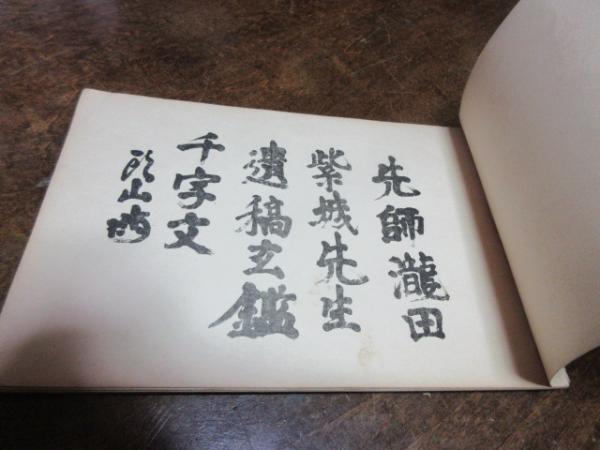 先師瀧田
紫城先生
遺稿玄鑑
千字文
頭山満